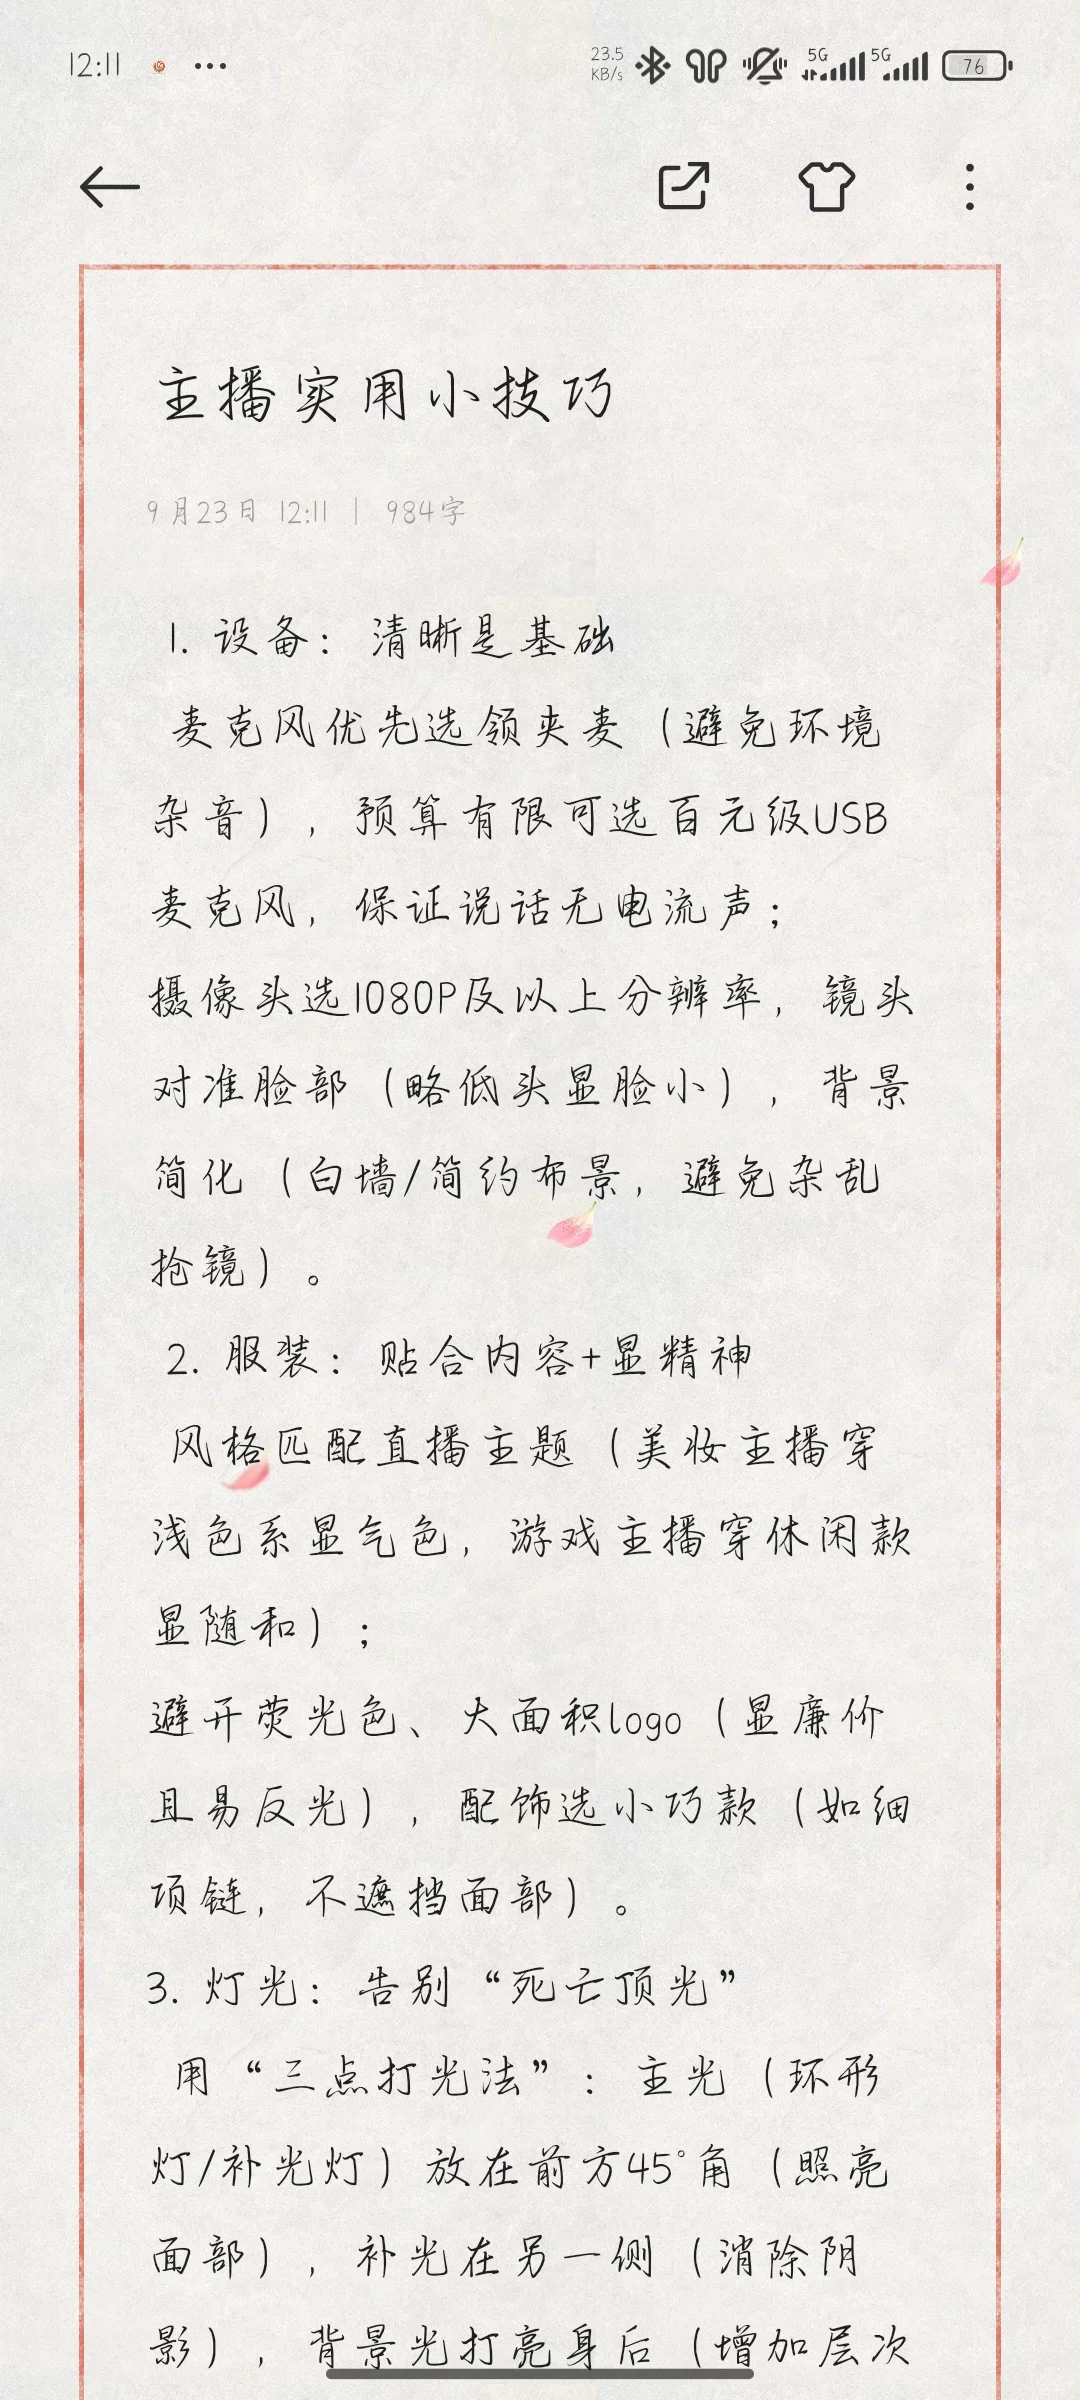 12:11
23.5 KB/s 5G 5G 76
主播实用小技巧
9月23日 12:11 | 984字
1. 设备：清晰是基础
麦克风优先选领夹麦（避免环境
杂音），预算有限可选百元级USB
麦克风，保证说话无电流声；
摄像头选1080P及以上分辨率，镜头
对准脸部（略低头显脸小），背景
简化（白墙/简约布景，避免杂乱
抢镜）。
2. 服装：贴合内容+显精神
风格匹配直播主题（美妆主播穿
浅色系显气色，游戏主播穿休闲款
显随和）；
避开荧光色、大面积logo（显廉价
且易反光），配饰选小巧款（如细
项链，不遮挡面部）。
3. 灯光：告别“死亡顶光”
用“三点打光法”：主光（环形
灯/补光灯）放在前方45°角（照亮
面部），补光在另一侧（消除阴
影），背景光打亮身后（增加层次